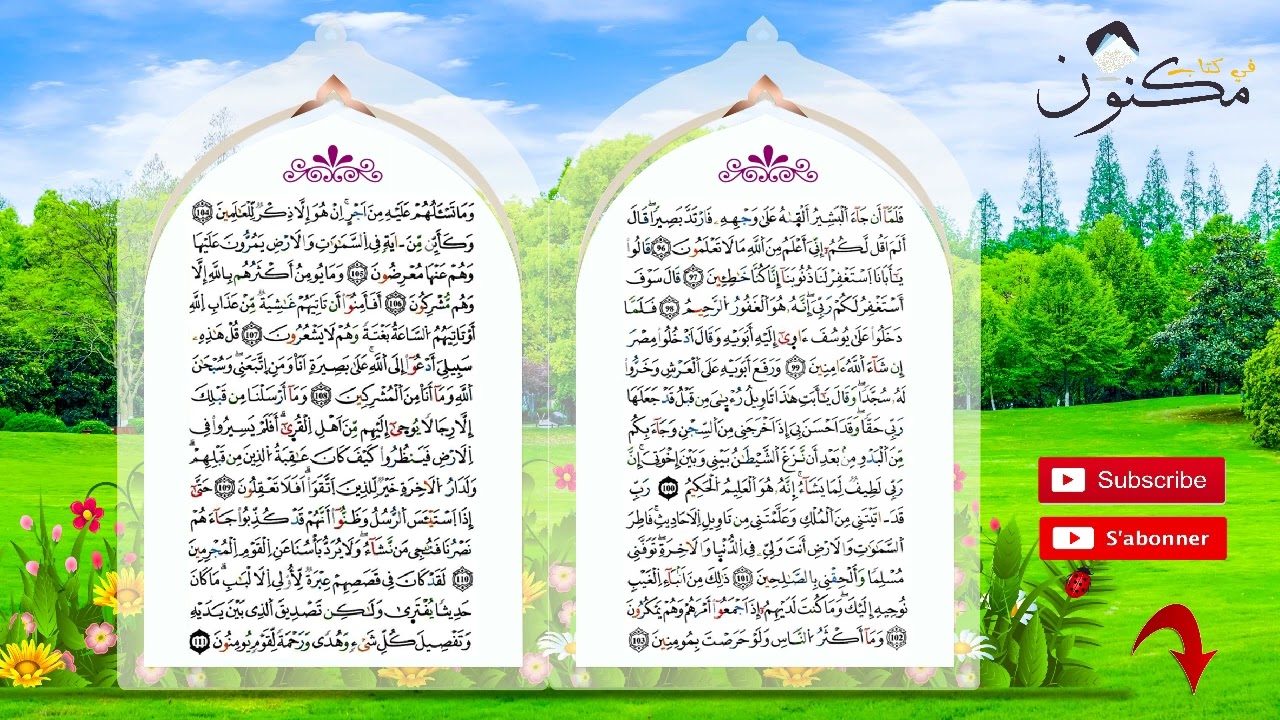 في كتاب
مكنون
فَلَمَّآ أَن جَآءَ اَ۬لْبَشِيرُ أَلْق۪ىٰهُ عَلَىٰ وَجْهِهِۦ فَارْتَدَّ بَصِيراٗۖ قَالَ
أَلَمَ اَقُل لَّكُمُۥٓ إِنِّيَ أَعْلَمُ مِنَ اَ۬للَّهِ مَا لَا تَعْلَمُونَۖ 96 قَالُواْ
يَٰٓأَبَانَا اَ۪سْتَغْفِرْ لَنَا ذُنُوبَنَآ إِنَّا كُنَّا خَٰطِـِٕينَۖ 97 قَالَ سَوْفَ
أَسْتَغْفِرُ لَكُمْ رَبِّيَۖ إِنَّهُۥ هُوَ اَ۬لْغَفُورُ اُ۬لرَّحِيمُۖ 98 فَلَمَّا
دَخَلُواْ عَلَىٰ يُوسُفَ ءَاو۪يٰٓ إِلَيْهِ أَبَوَيْهِ وَقَالَ اَ۟دْخُلُواْ مِصْرَ
إِن شَآءَ اَ۬للَّهُ ءَامِنِينَۖ 99 وَرَفَعَ أَبَوَيْهِ عَلَى اَ۬لْعَرْشِ وَخَرُّواْ
لَهُۥ سُجَّداٗۖ وَقَالَ يَٰٓأَبَتِ هَٰذَا تَاوِيلُ رُءْيٰ۪يَ مِن قَبْلُ قَدْ جَعَلَهَا
رَبِّي حَقّاٗۖ وَقَدَ اَحْسَنَ بِيَ إِذَ اَخْرَجَنِي مِنَ اَ۬لسِّجْنِ وَجَآءَ بِكُم
مِّنَ اَ۬لْبَدْوِ مِنۢ بَعْدِ أَن نَّزَغَ اَ۬لشَّيْطَٰنُ بَيْنِي وَبَيْنَ إِخْوَتِيَۖ إِنَّ
رَبِّي لَطِيفٞ لِّمَا يَشَآءُۖ اِنَّهُۥ هُوَ اَ۬لْعَلِيمُ اُ۬لْحَكِيمُۖ 100 رَبِّ
قَدَ اٰتَيْتَنِي مِنَ اَ۬لْمُلْكِ وَعَلَّمْتَنِي مِن تَاوِيلِ اِ۬لَاحَادِيثِۖ فَاطِرَ
اَ۬لسَّمَٰوَٰتِ وَالَارْضِ أَنتَ وَلِيِّۦ فِي اِ۬لدُّنْي۪ا وَالَاخِرَةِۖ تَوَفَّنِي
مُسْلِماٗ وَأَلْحِقْنِي بِالصَّٰلِحِينَۖ 101 ذَٰلِكَ مِنَ اَنۢبَآءِ اِ۬لْغَيْبِ
نُوحِيهِ إِلَيْكَۖ وَمَا كُنتَ لَدَيْهِمُۥٓ إِذَ اَجْمَعُوٓاْ أَمْرَهُمْ وَهُمْ يَمْكُرُونَۖ
102 وَمَآ أَكْثَرُ اُ۬لنَّاسِ وَلَوْ حَرَصْتَ بِمُومِنِينَۖ 103
وَمَا تَسْـَٔلُهُمْ عَلَيْهِ مِنَ اَجْرٍۖ اِنْ هُوَ إِلَّا ذِكْرٞ لِّلْعَٰلَمِينَۖ 104
وَكَأَيِّن مِّنَ اٰيَةٖ فِي اِ۬لسَّمَٰوَٰتِ وَالَارْضِ يَمُرُّونَ عَلَيْهَا
وَهُمْ عَنْهَا مُعْرِضُونَۖ 105 وَمَا يُومِنُ أَكْثَرُهُم بِاللَّهِ إِلَّا
وَهُم مُّشْرِكُونَۖ 106 أَفَأَمِنُوٓاْ أَن تَاتِيَهُمْ غَٰشِيَةٞ مِّنْ عَذَابِ اِ۬للَّهِ
أَوْ تَاتِيَهُمُ اُ۬لسَّاعَةُ بَغْتَةٗ وَهُمْ لَا يَشْعُرُونَۖ 107 قُلْ هَٰذِهِۦ
سَبِيلِيَ أَدْعُوٓاْ إِلَى اَ۬للَّهِۖ عَلَىٰ بَصِيرَةٍ اَنَا وَمَنِ اِ۪تَّبَعَنِيۖ وَسُبْحَٰنَ
اَ۬للَّهِ وَمَآ أَنَا مِنَ اَ۬لْمُشْرِكِينَۖ 108 وَمَآ أَرْسَلْنَا مِن قَبْلِكَ
إِلَّا رِجَالاٗ يُوح۪ىٰٓ إِلَيْهِم مِّنَ اَهْلِ اِ۬لْقُر۪ىٰٓۖ أَفَلَمْ يَسِيرُواْ فِي
اِ۬لَارْضِ فَيَنظُرُواْ كَيْفَ كَانَ عَٰقِبَةُ اُ۬لذِينَ مِن قَبْلِهِمْۖ
وَلَدَارُ اُ۬لَاخِرَةِ خَيْرٞ لِّلذِينَ اَ۪تَّقَوَاْۖ اَفَلَا تَعْقِلُونَۖ 109 حَتَّىٰٓ
إِذَا اَ۪سْتَيْـَٔسَ اَ۬لرُّسُلُ وَظَنُّوٓاْ أَنَّهُمْ قَدْ كُذِّبُواْ جَآءَهُمْ
نَصْرُنَا فَنُنجِي مَن نَّشَآءُۖ وَلَا يُرَدُّ بَأْسُنَا عَنِ اِ۬لْقَوْمِ اِ۬لْمُجْرِمِينَۖ
110 لَقَدْ كَانَ فِي قَصَصِهِمْ عِبْرَةٞ لِّأُوْلِي اِ۬لَالْبَٰبِۖ مَا كَانَ
حَدِيثاٗ يُفْتَر۪ىٰۖ وَلَٰكِن تَصْدِيقَ اَ۬لذِي بَيْنَ يَدَيْهِ
وَتَفْصِيلَ كُلِّ شَےْءٖ وَهُدىٗ وَرَحْمَةٗ لِّقَوْمٖ يُومِنُونَۖ 111
Subscribe
S'abonner